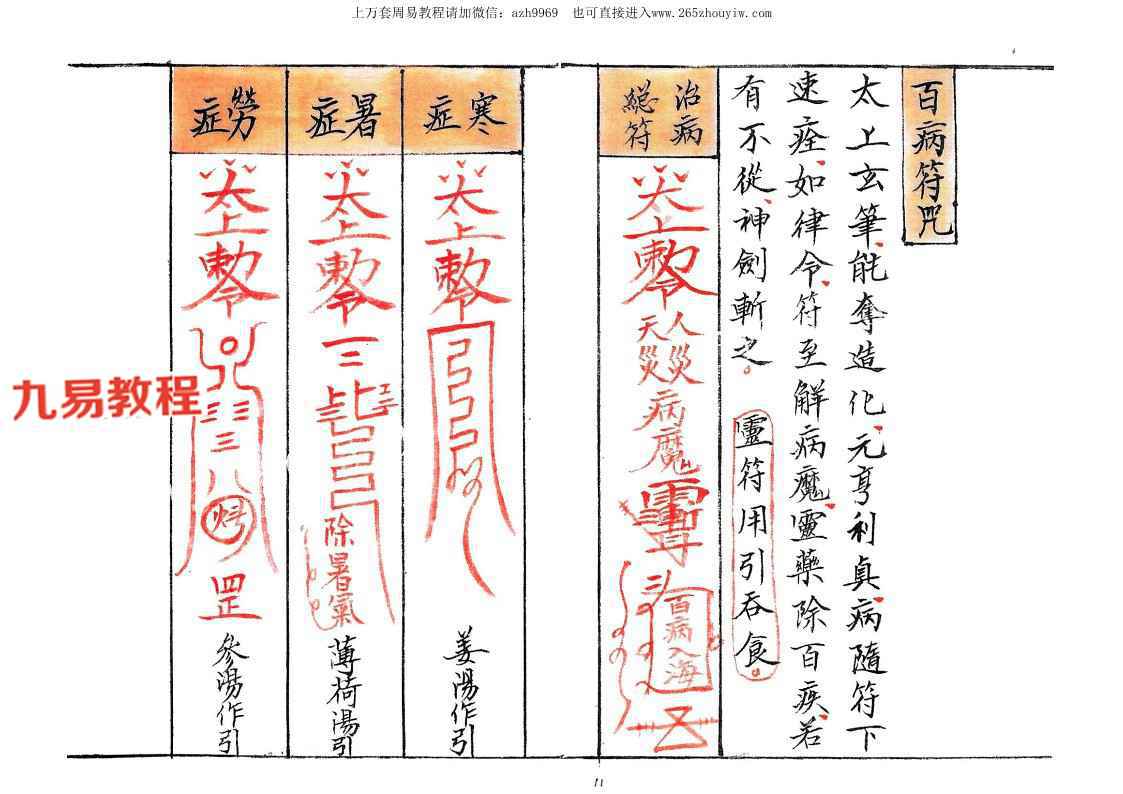 上万套周易教程请加微信：azh9969　也可直接进入www.265zhouyiw.com
百病符咒
太上玄筆能奪造化元亨利貞病隨符下
速痊如律令符至解病魔靈藥除百疾若
有不從神劍斬之。靈符用引吞食。
治病
總符
太上敕令
人災
天災
病魔
百病入海
寒症
太上敕令
姜湯作引
暑症
太上敕令
除暑氣
薄荷湯引
勞症
太上敕令
罡
參湯作引
九易教程
11